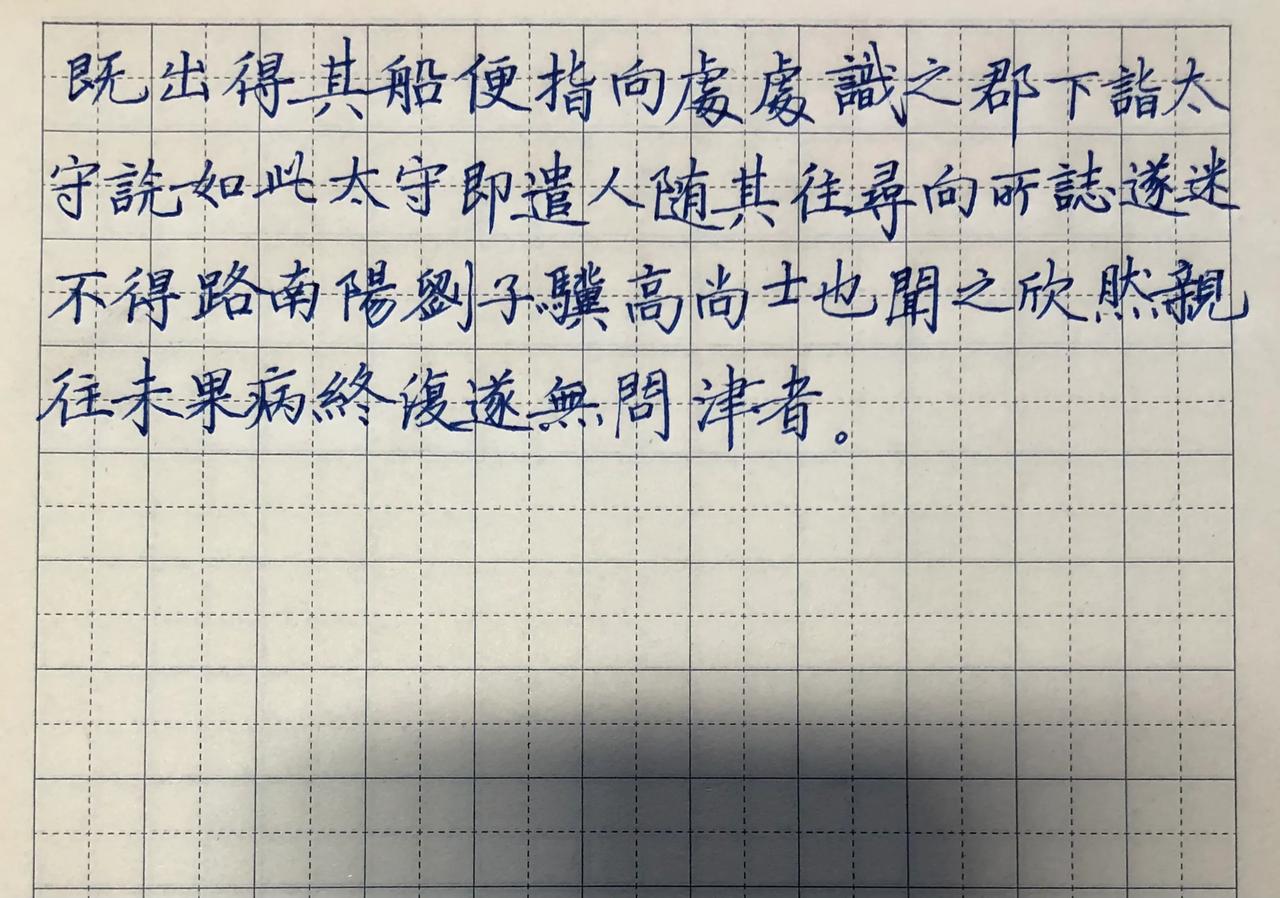 既出得其船便指向處處識之郡下詣太
守說如此太守即遣人随其往尋向所誌遂迷
不得路南陽劉子驥高尚士也聞之欣然親
往未果病終復遂無問津者。